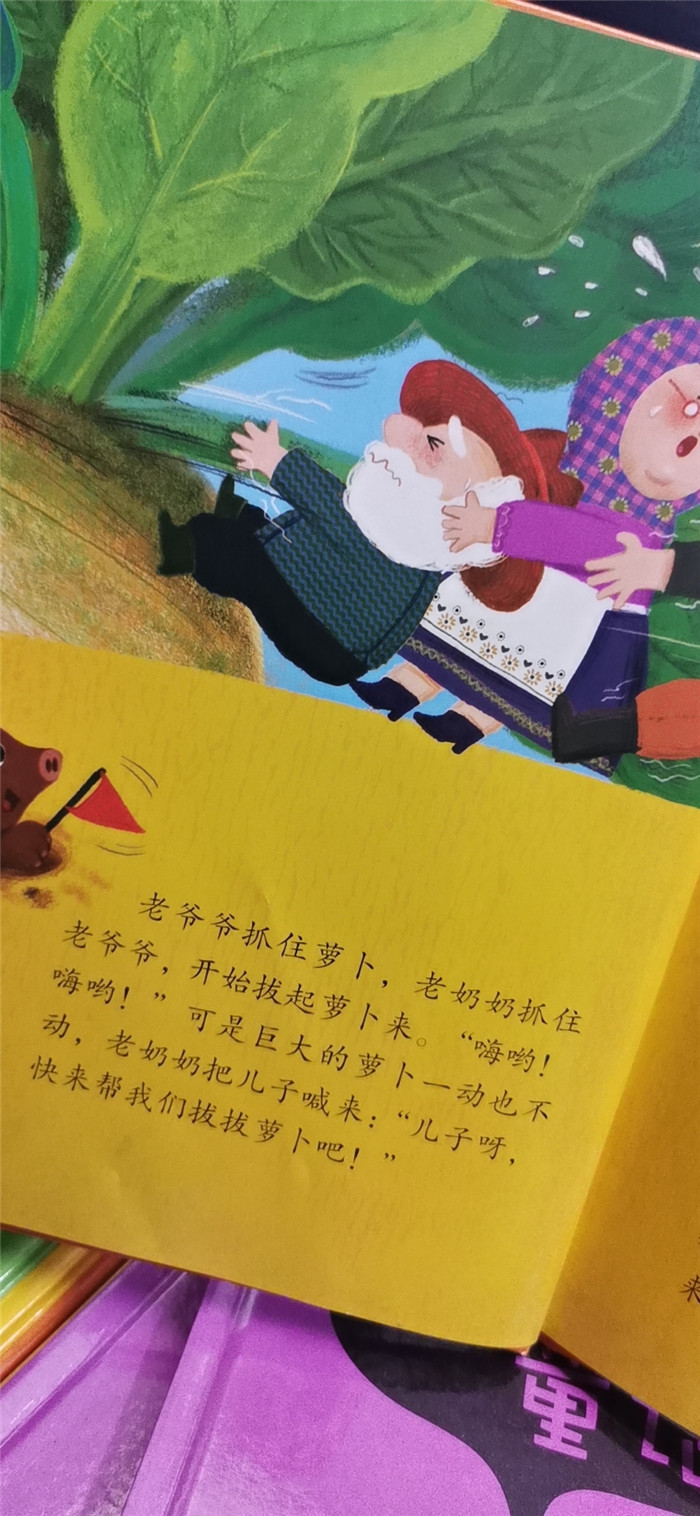 老爷爷抓住萝卜，老奶奶抓住
老爷爷，开始拔起萝卜来。“嗨哟！
嗨哟！”可是巨大的萝卜一动也不
动，老奶奶把儿子喊来：“儿子呀，
快来帮我们拔拔萝卜吧！”
来
童